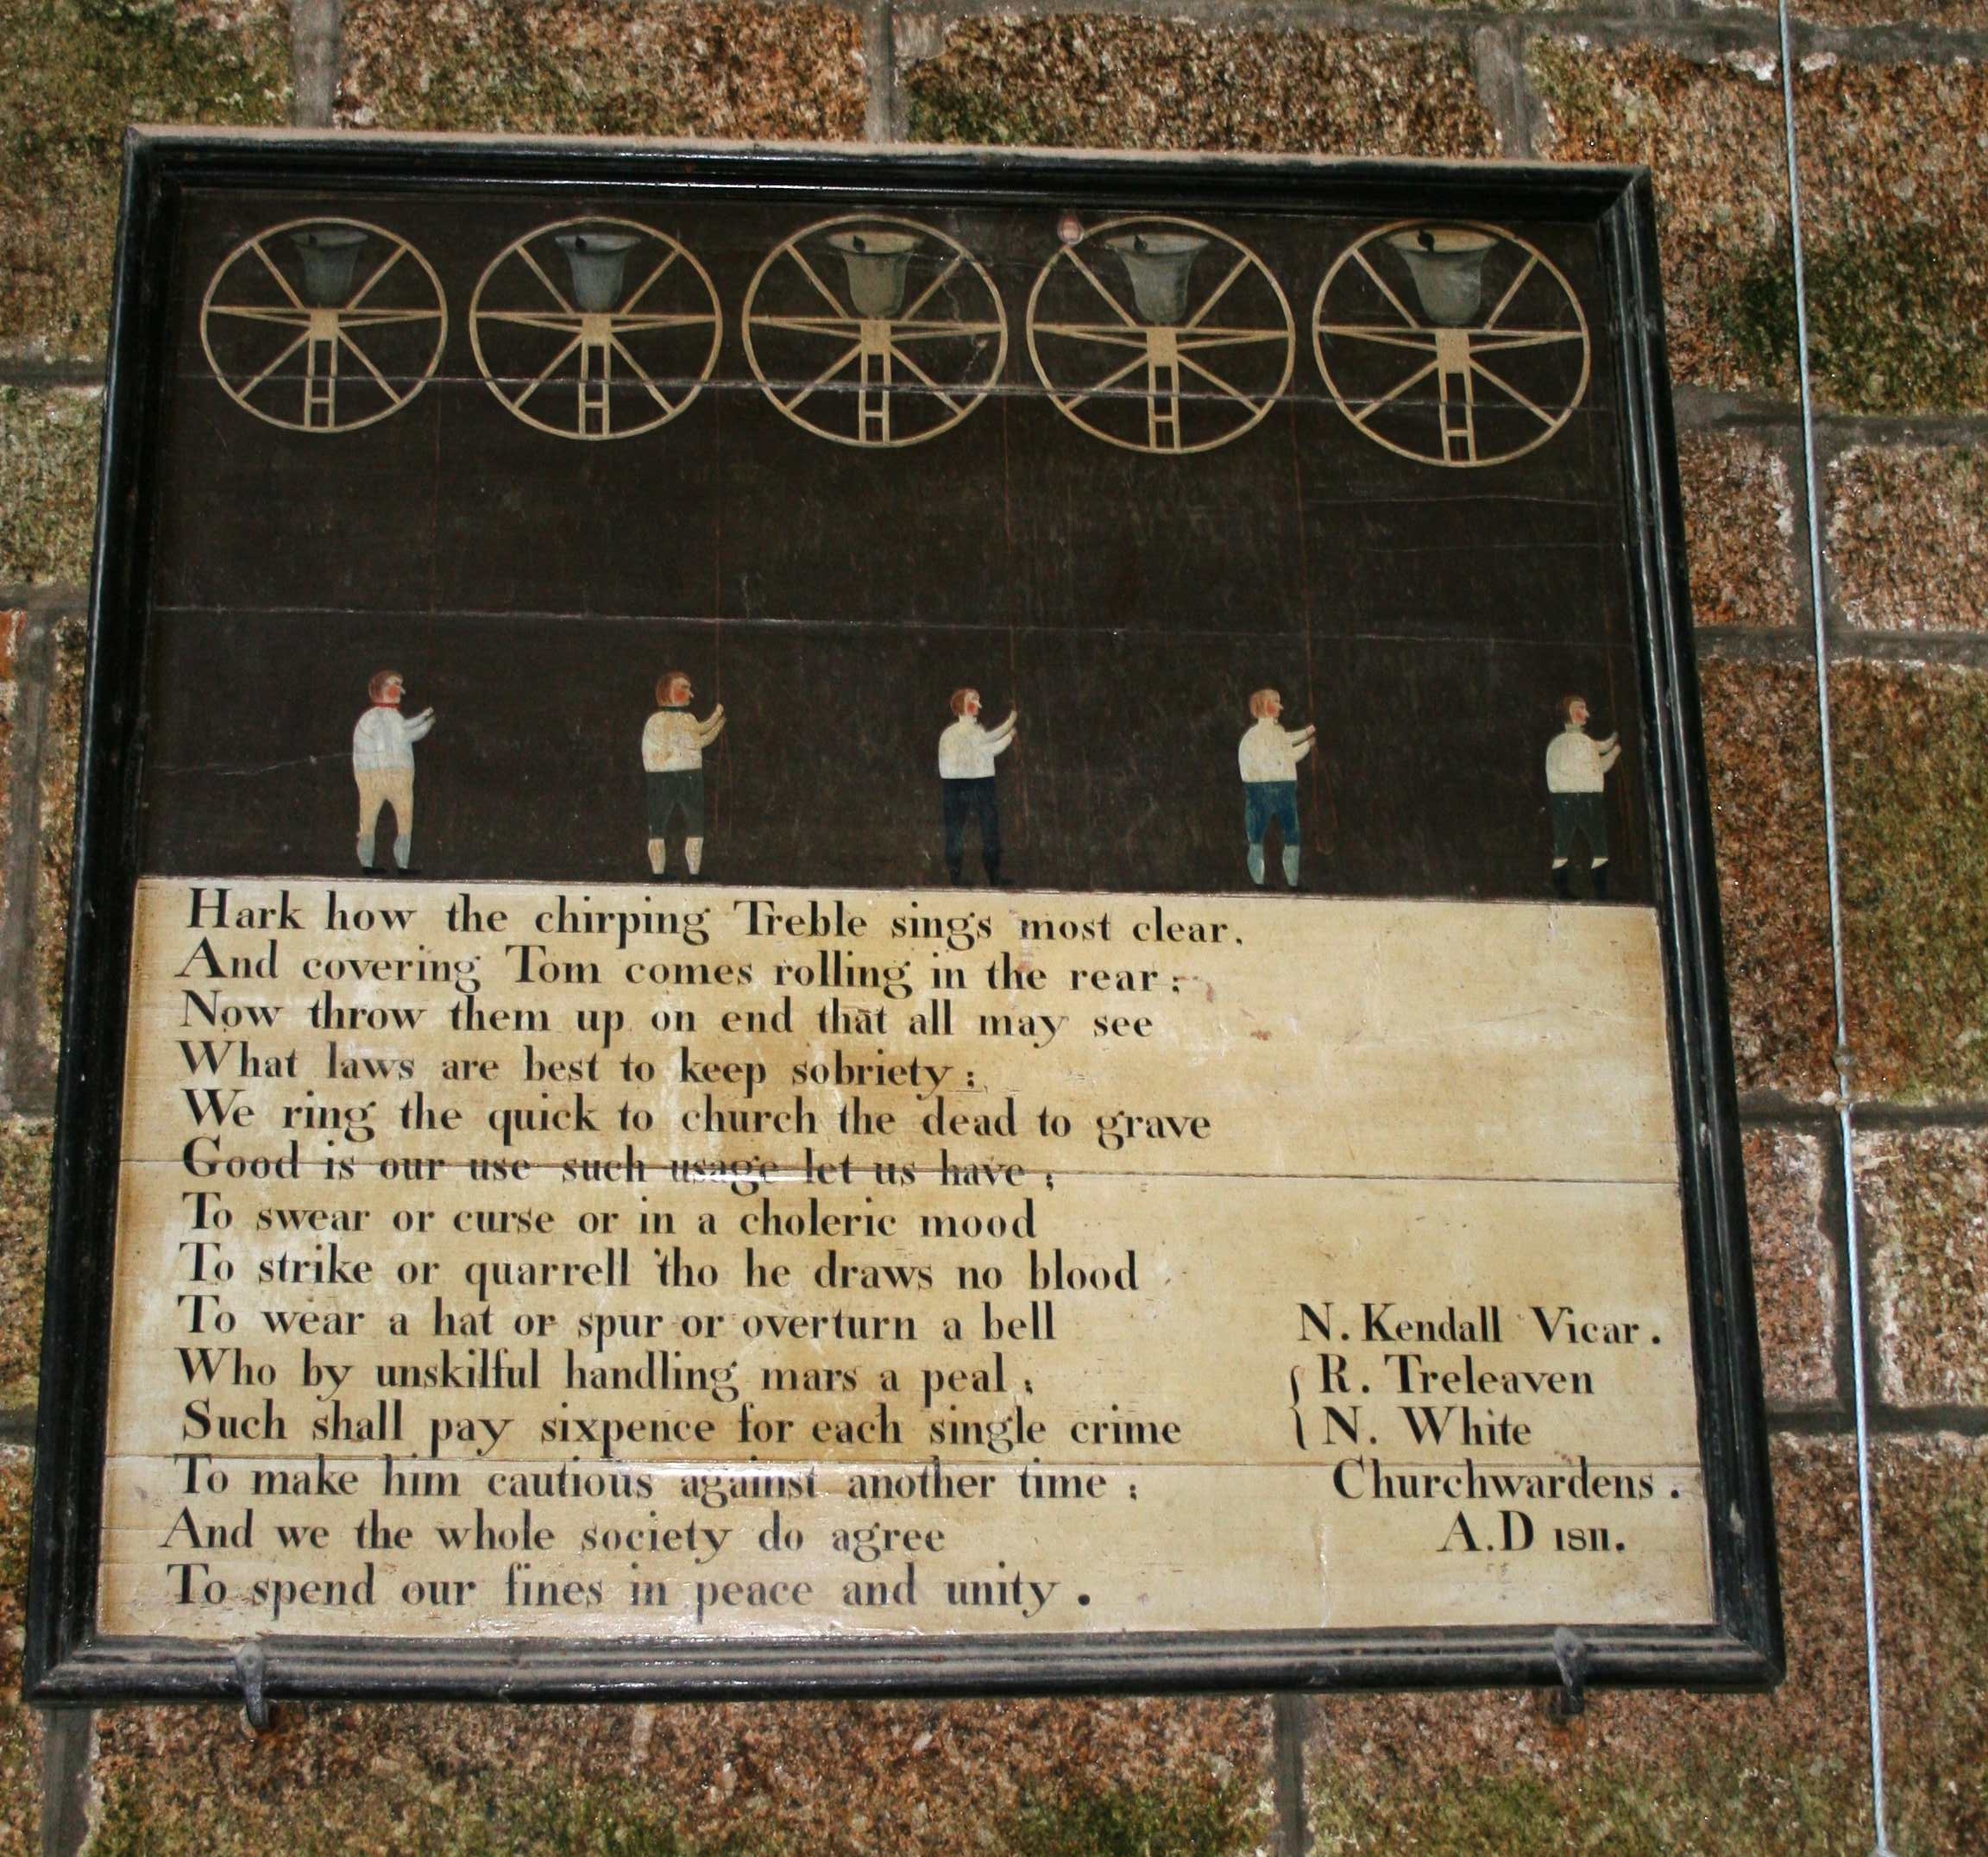 Hark how the chirping Treble sings most clear.
And covering Tom comes rolling in the rear;
Now throw them up on end that all may see
What laws are best to keep sobriety;
We ring the quick to church the dead to grave
Good is our use such usage let us have;
To swear or curse or in a choleric mood
To strike or quarrell 'tho he draws no blood
To wear a hat or spur or overturn a bell
Who by unskilful handling mars a peal;
Such shall pay sixpence for each single crime
To make him cautious against another time;
And we the whole society do agree
To spend our fines in peace and unity.
N. Kendall Vicar.
R. Treleaven
N. White
Churchwardens.
A.D 1811.